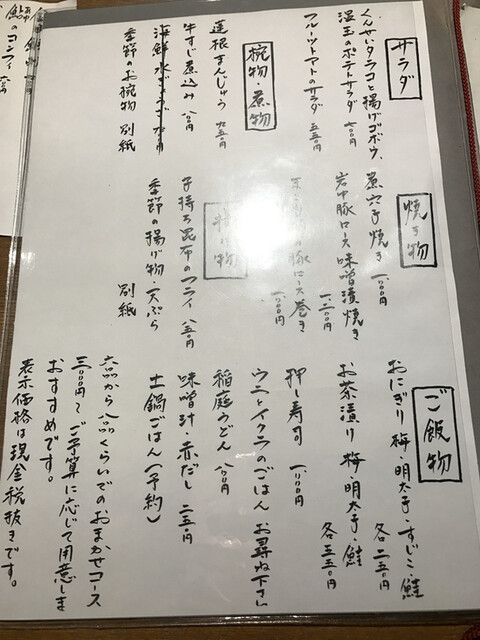 サラダ
くんせいタラコと揚げゴボウ、
温玉のポテトサラダ 七〇〇円
フルーツトマトのサラダ 五五〇円
椀物 煮物
蓮根まんじゅう 九五〇円
牛すじ煮込み 八〇〇円
海鮮水ぎょうざ
季節のお椀物 別紙
焼き物
煮穴子焼き 一、一〇〇円
岩中豚ロース味噌漬焼き
一、二〇〇円
豚ロース巻き
一、〇〇〇円
物
子持ち昆布のフライ 八五〇円
季節の揚げ物・天ぷら
別紙
ご飯物
おにぎり 梅・明太子・すじこ・鮭
各二五〇円
お茶漬け 梅・明太子・鮭
各五五〇円
押し寿司 一、一〇〇円
ウニとイクラのごはん お尋ね下さい
稲庭うどん 八〇〇円
味噌汁 赤だし 二五〇円
土鍋ごはん(予約)
六品から八品くらいでのおまかせコース
ご予算に応じて用意しま
おすすめです。
表示価格は現金税抜きです。
のコンフィ